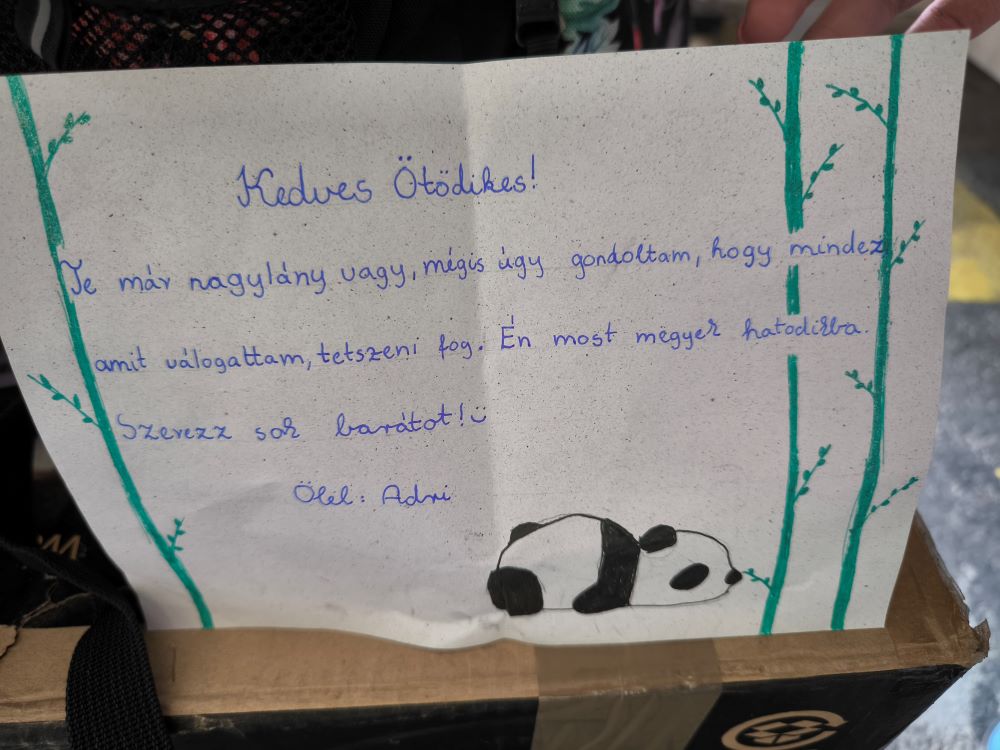 Kedves Ötödikes!
Te már nagylány vagy, mégis úgy gondoltam, hogy mindez
amit válogattam, tetszeni fog. Én most megyek hatodikba.
Szerezz sok barátot!
Ölel: Adri